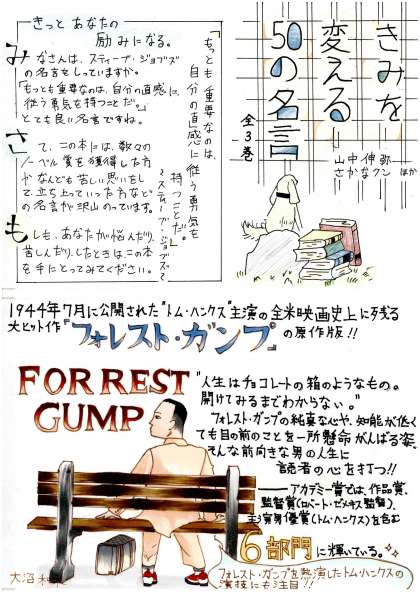 きみを
変える
50の名言
全3巻
山中伸弥
さかなクン ほか
きっと あなたの
励みになる。
みなさんは、スティーブ・ジョブズ
の名言をしっていますか。
「もっとも重要なのは、自分の直感に
従う勇気を持つことだ。」
とても良い名言ですね。
さて、この本には、数々の
ノーベル賞を獲得した方
がなんども苦しい思いをし
て立ち上っていった方など
の名言が沢山のっています。
もしも、あなたが悩んだり、
苦しんだりしたときは、この本
を手にとってみてください。
「もっとも重要なのは、
自分の直感に従う勇気を
持つことだ。」
～スティーブ・ジョブズ～
1944年7月に公開された"トム・ハンクス"主演の全米映画史上に残る
大ヒット作『フォレスト・ガンプ』の原作版!!
FORREST
GUMP
"人生はチョコレートの箱のようなもの。
開けてみるまでわからない。"
フォレスト・ガンプの純粋な心や、知能が低く
ても目の前のことを一所懸命がんばる姿、
そんな前向きな男の人生に
読者の心を打つ!!
アカデミー賞では、作品賞、
監督賞(ロバート・ゼメキス監督)、
主演男優賞(トム・ハンクス)を含む
6部門に輝いている。
フォレスト・ガンプを熱演したトム・ハンクスの
演技にも注目!!
大沼